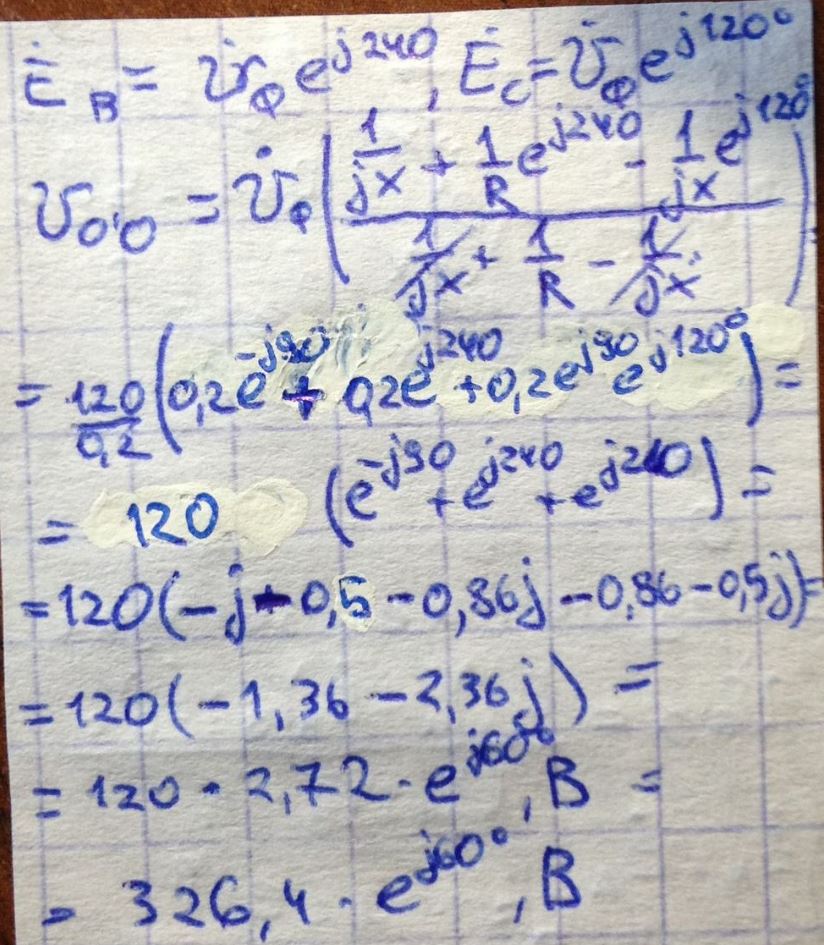 Ė_B = U̇_Ф e^{j240}, Ė_C = U̇_Ф e^{j120°}
U_{O'O} = U̇_Ф ( (1/jX + 1/R e^{j240} - 1/jX e^{j120°}) / (1/jX + 1/R - 1/jX) )
= 120/0,2 (0,2e^{-j90} + 0,2e^{j240} + 0,2e^{j90} e^{j120°}) =
= 120 (e^{-j90} + e^{j240} + e^{j210}) =
= 120(-j - 0,5 - 0,86j - 0,86 - 0,5j) =
= 120(-1,36 - 2,36j) =
= 120 · 2,72 · e^{j60°}, В =
= 326,4 · e^{j60°}, В